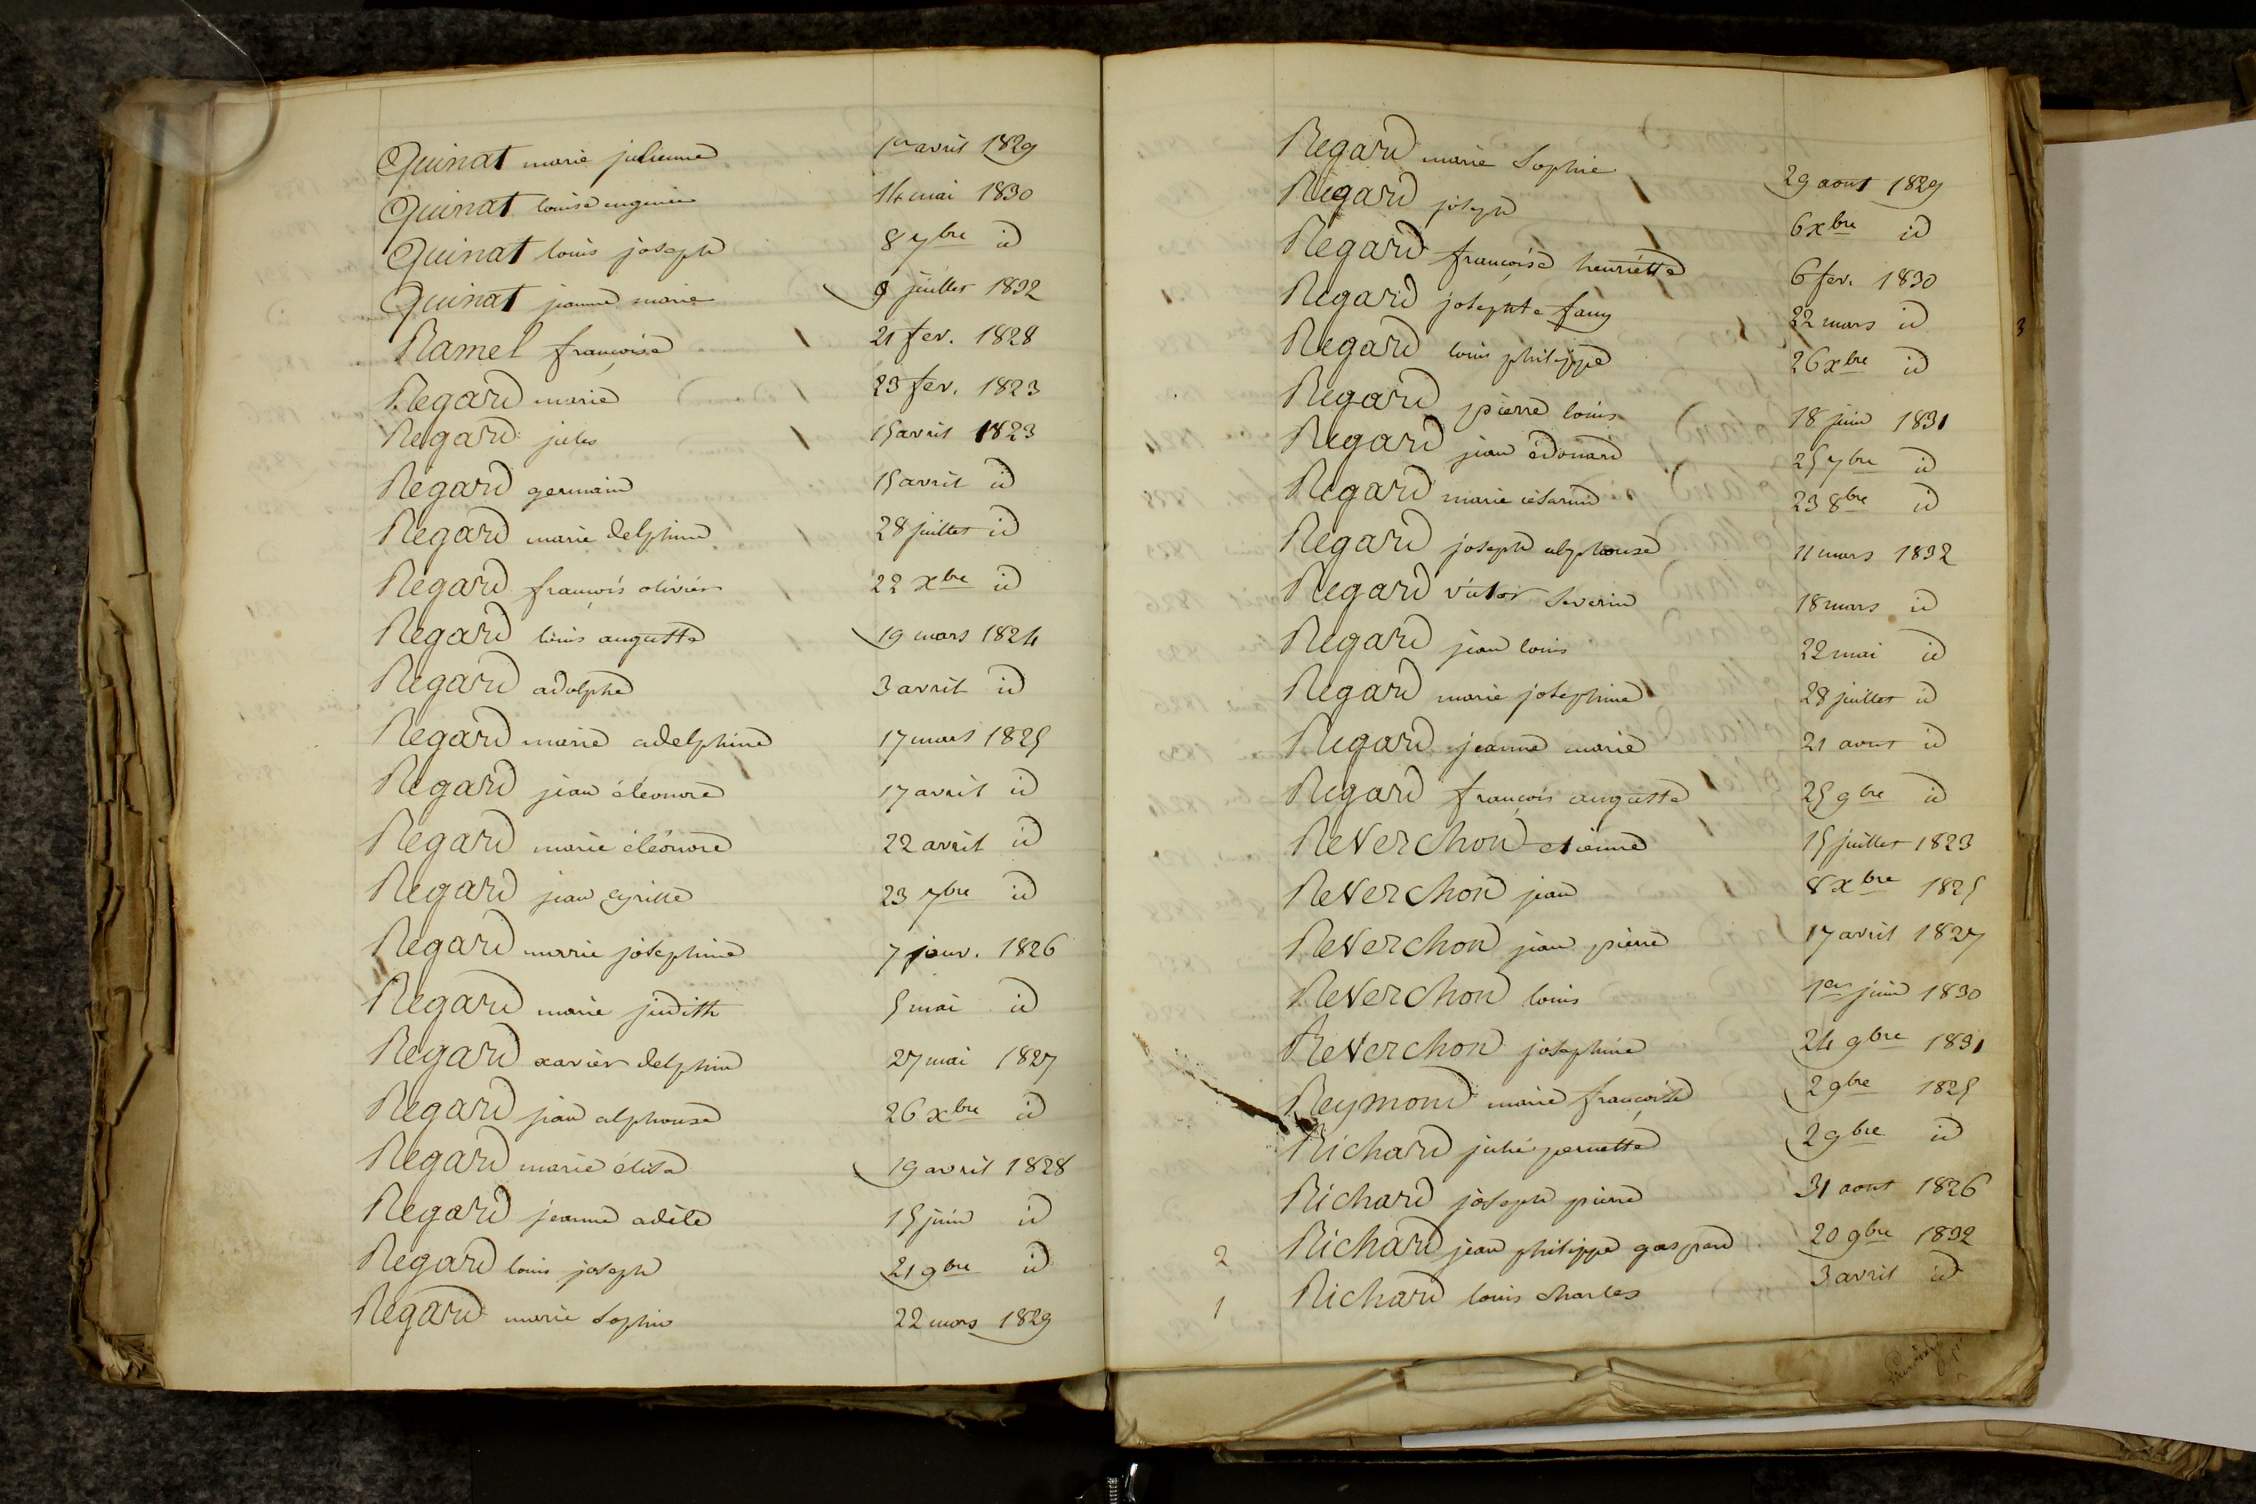 Quinat marie julienne 1er avril 1829
Quinat louise eugenie 14 mai 1830
Quinat louis joseph 8 7bre id
Quinat jeanne marie 9 juillet 1832
Ramel françoise 21 fev. 1828
Regard marie 23 fev. 1823
Regard jules 15 avril 1823
Regard germain 15 avril id
Regard marie delphine 28 juillet id
Regard françois olivier 22 xbre id
Regard louis auguste 19 mars 1824
Regard adolphe 3 avril id
Regard marie adelphine 17 mars 1825
Regard jean éléonore 17 avril id
Regard marie éléonore 22 avril id
Regard jean cyrille 23 7bre id
Regard marie josephine 7 janv. 1826
Regard marie judith 5 mai id
Regard xavier delphin 27 mai 1827
Regard jean alphonse 26 xbre id
Regard marie élisa 19 avril 1828
Regard jeanne adèle 15 juin id
Regard louis joseph 21 9bre id
Regard marie sophie 22 mars 1829
Regard marie Sophie 29 aout 1829
Regard joseph 6 xbre id
Regard françoise henriette 6 fev. 1830
Regard josephte fany 22 mars id
Regard louis philippe 26 xbre id
Regard pierre louis 18 juin 1831
Regard jean édouard 25 7bre id
Regard marie césarine 23 8bre id
Regard joseph alphonse 11 mars 1832
Regard victor Severin 18 mars id
Regard jean louis 22 mai id
Regard marie josephine 28 juillet id
Regard jeanne marie 21 aout id
Regard françois auguste 25 9bre id
Reverchon etienne 15 juillet 1823
Reverchon jean 8 xbre 1825
Reverchon jean pierre 17 avril 1827
Reverchon louis 1er juin 1830
Reverchon josephine 24 9bre 1831
Reymond marie françoise 2 9bre 1825
Richard julie pernette 2 9bre id
Richard joseph pierre 31 aout 1826
2 Richard jean philippe gaspard 20 9bre 1832
1 Richard louis charles 3 avril id